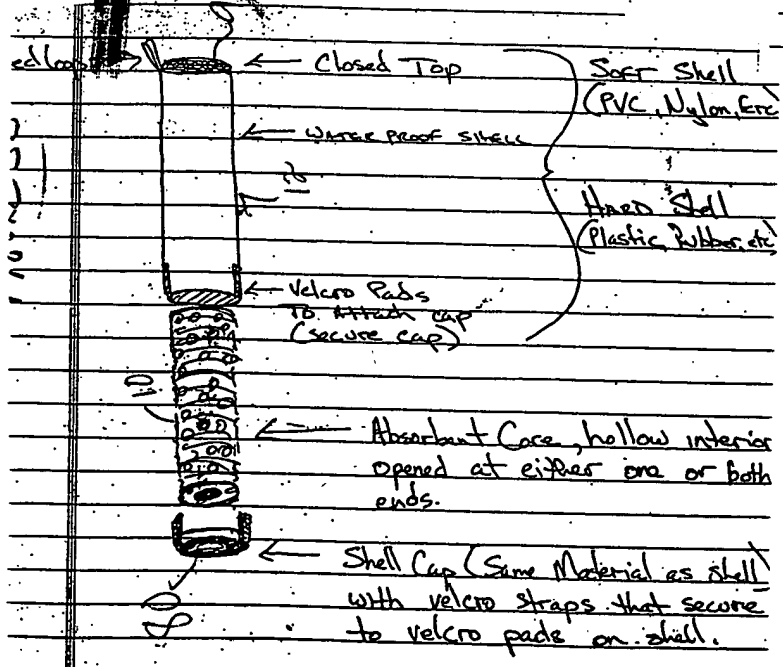 Closed Top
Soft Shell
(PVC, Nylon, Etc
WATER PROOF SHELL
12
Hard Shell
(Plastic, Rubber, etc)
Velcro Pads
To Attach cap
(secure cap)
10
Absorbant Core, hollow interior
opened at either one or both
ends.
Shell Cap (Same Material as shell)
with velcro straps that secure
to velcro pads on shell.
80